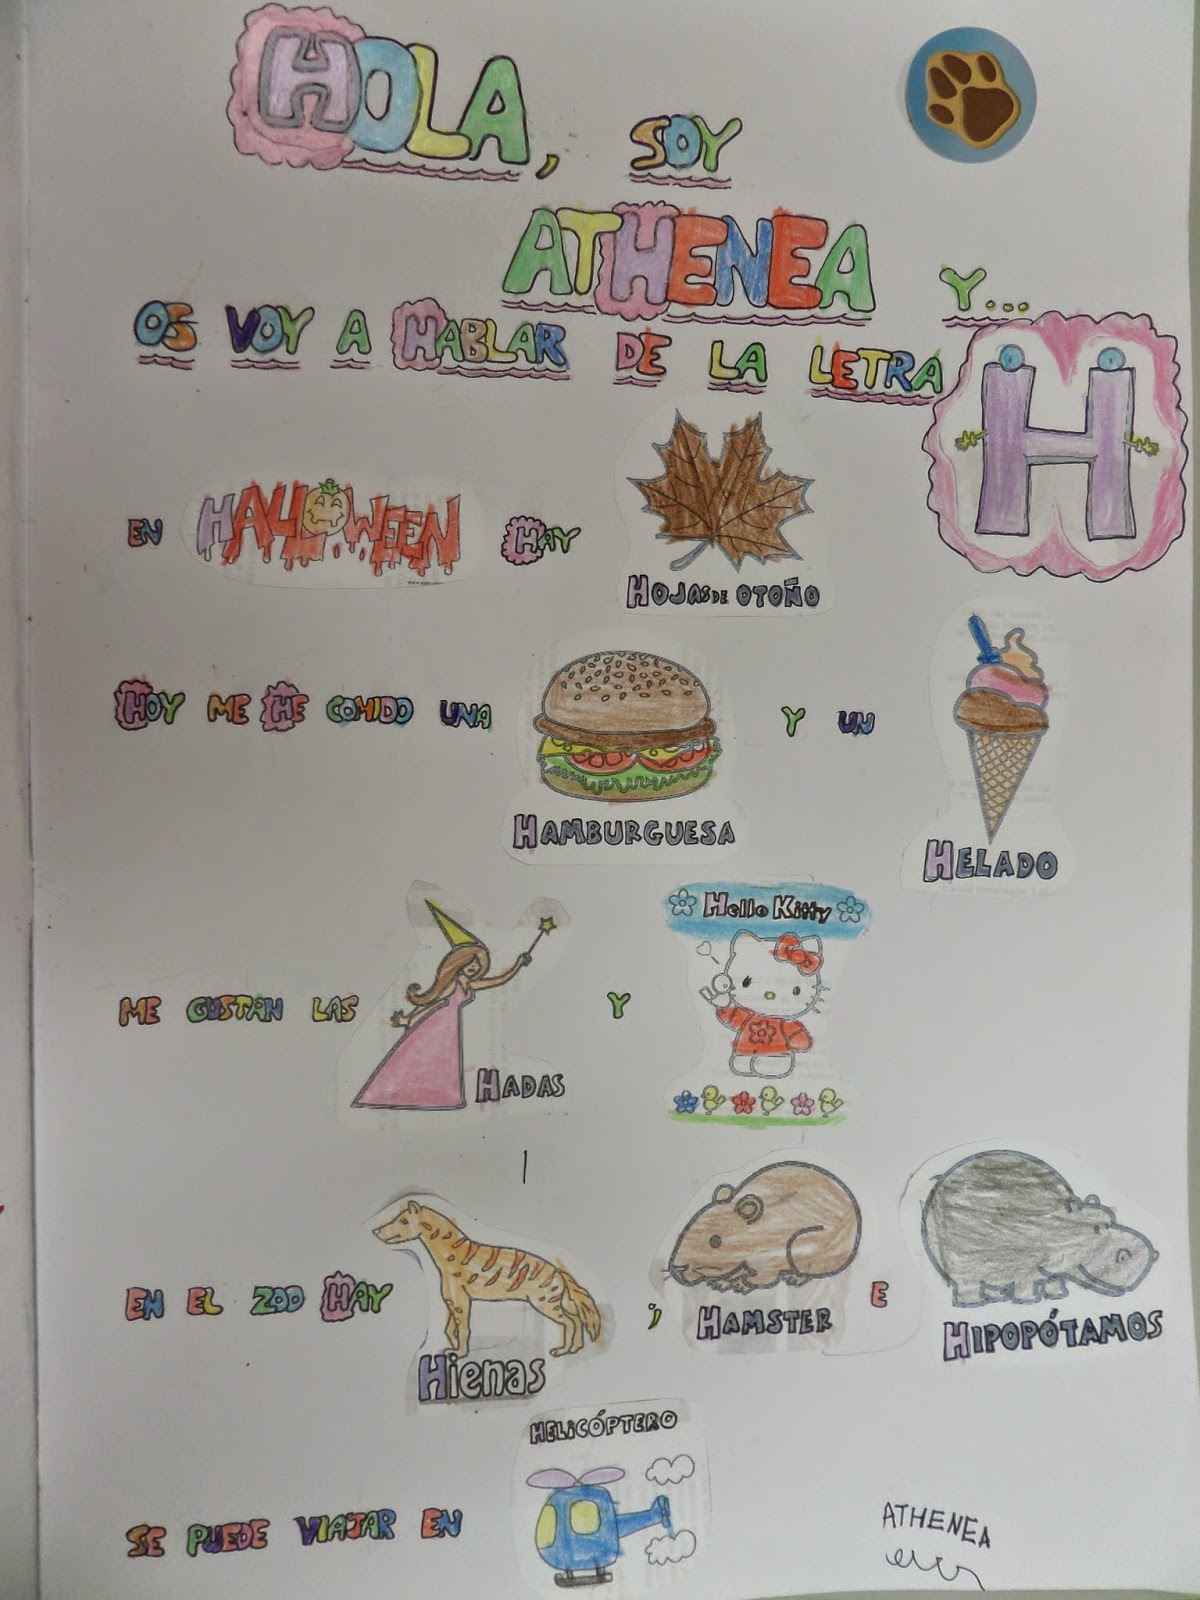 HOLA, SOY
ATHENEA Y...
OS VOY A HABLAR DE LA LETRA H
EN HALLOWEEN HAY
HOJAS DE OTOÑO
HOY ME HE COMIDO UNA Y UN
HAMBURGUESA
HELADO
Hello Kitty
ME GUSTAN LAS Y
HADAS
EN EL ZOO HAY , E
HAMSTER
HIPOPÓTAMOS
Hienas
HELICÓPTERO
SE PUEDE VIAJAR EN
ATHENEA